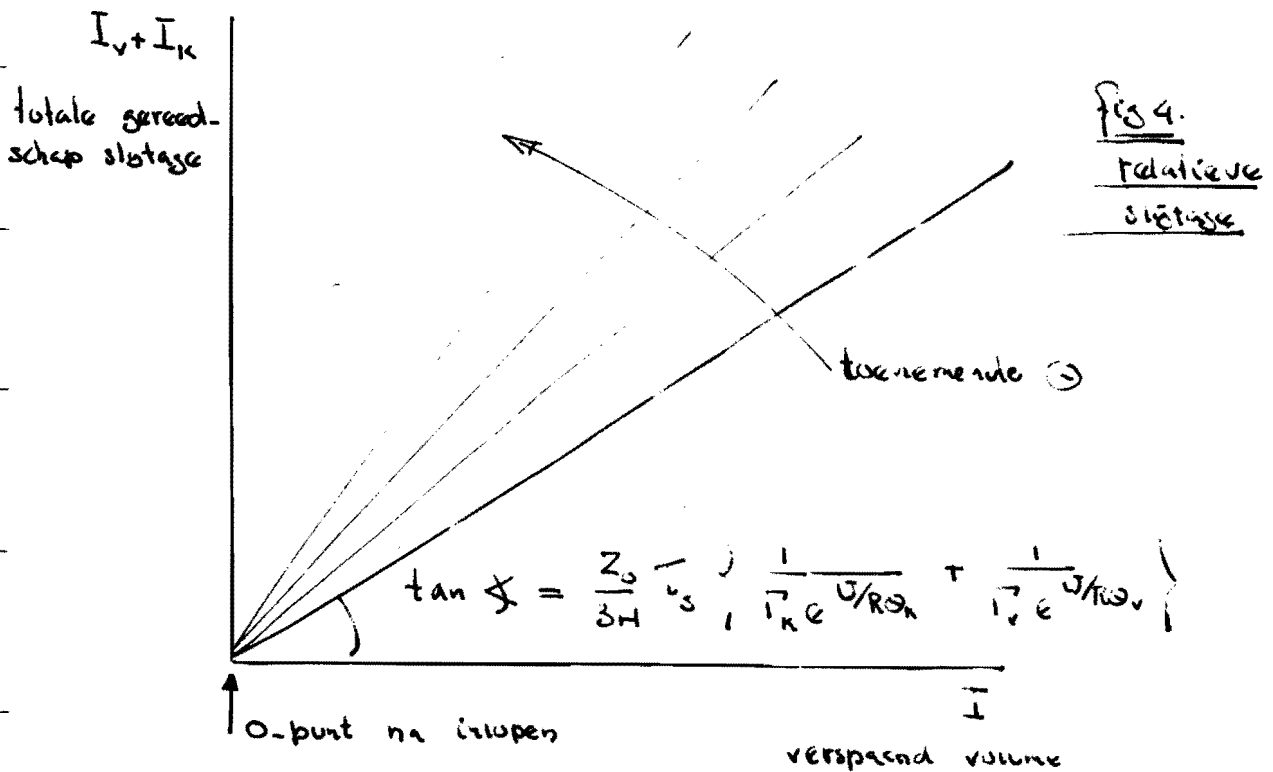 I_v + I_k
totale gereed-
schap slijtage
fig 4.
relatieve
slijtage
toenemende Θ
tan ∢ = Z_0/3H { 1/(Γ_k e^{U/RΘ_k}) + 1/(Γ_v e^{U/RΘ_v}) }
I
0-punt na inlopen
verspaend volume